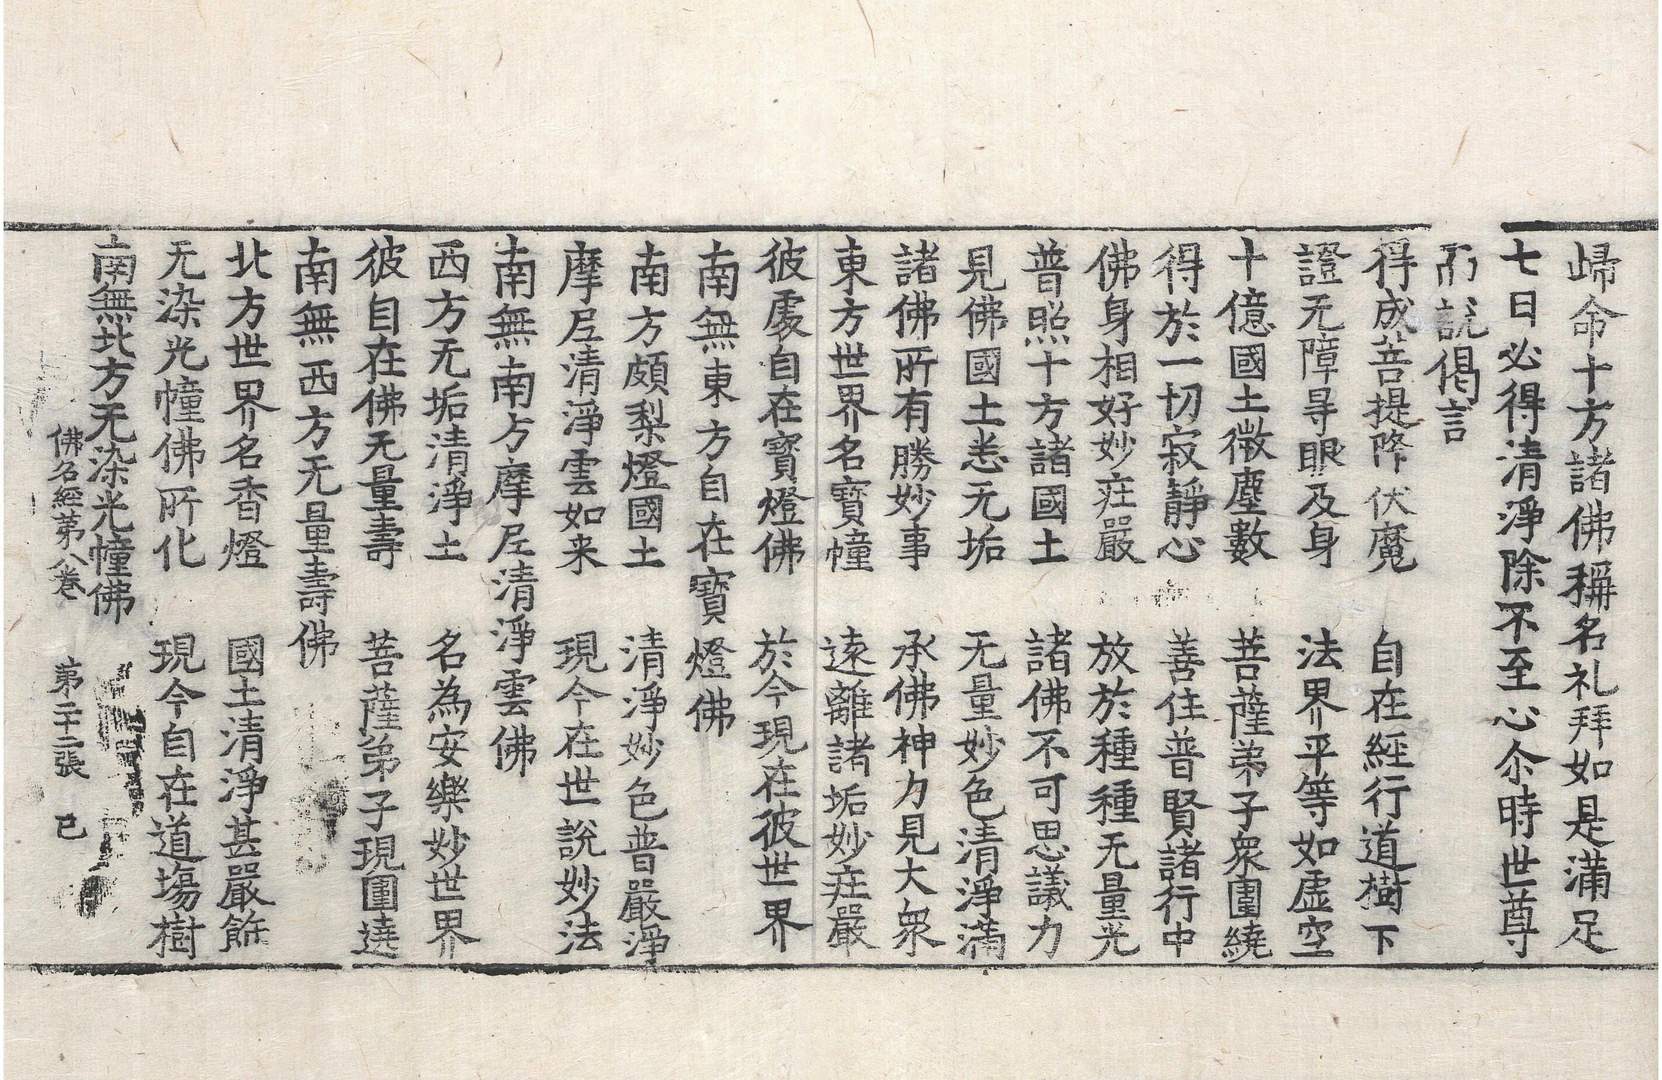 歸命十方諸佛稱名礼拜如是滿足
七日必得清淨除不至心尒時世尊
而說偈言
得成菩提降伏魔　自在經行道樹下
證无障㝵眼及身　法界平等如虛空
十億國土微塵數　菩薩弟子衆圍繞
得於一切寂靜心　善住普賢諸行中
佛身相好妙疘嚴　放於種種无量光
普照十方諸國土　諸佛不可思議力
見佛國土悉无垢　无量妙色清淨滿
諸佛所有勝妙事　承佛神力見大衆
東方世界名寶幢　遠離諸垢妙疘嚴
彼處自在寶燈佛　於今現在彼世界
南無東方自在寶燈佛
南方頗梨燈國土　清淨妙色普嚴淨
摩尼清淨雲如来　現今在世說妙法
南無南方摩尼清淨雲佛
西方无垢清淨土　名為安樂妙世界
彼自在佛无量壽　菩薩弟子現圍遶
南無西方无量壽佛
北方世界名香燈　國土清淨甚嚴飾
无染光幢佛所化　現今自在道塲樹
南無北方无染光幢佛
佛名經第八卷　第二十二張　已